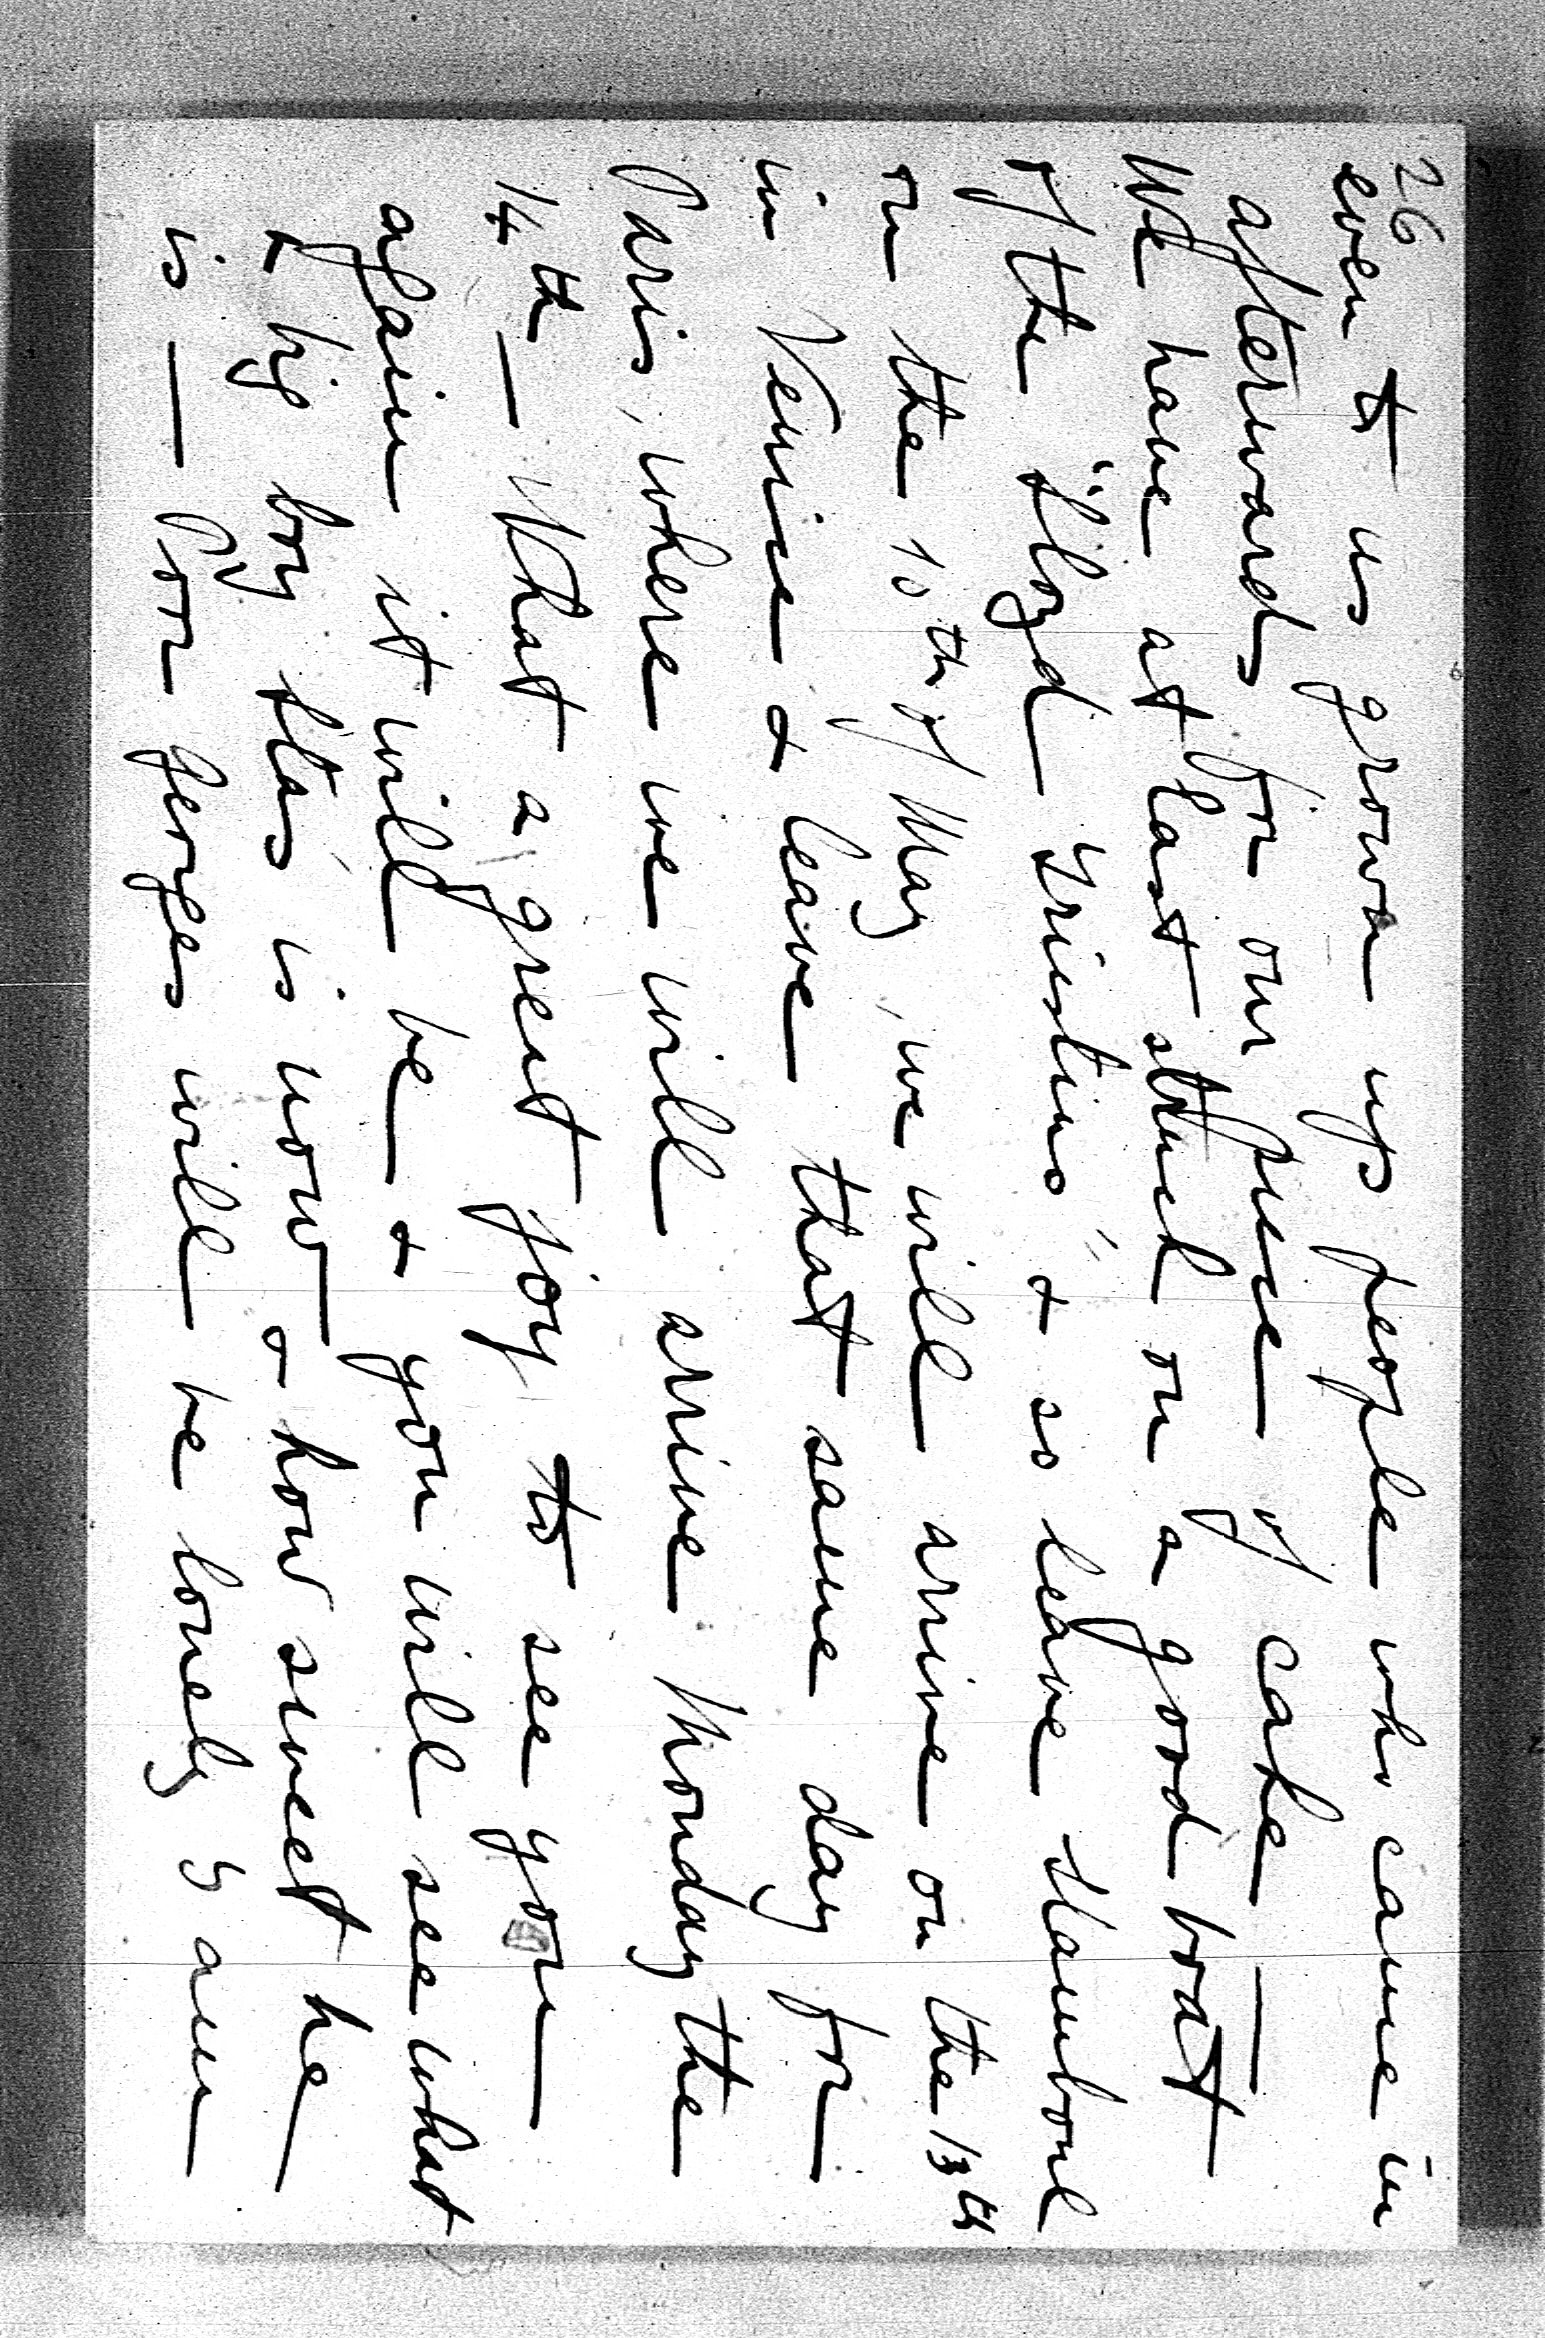 26
even to us grown ups people who came in
afterwards for our piece of cake —
We have at last struck on a good boat
of the "Lloyd Triestino" & so leave Stamboul
on the 10th of May, we will arrive on the 13th
in Venice & leave that same day for
Paris, where we will arrive Monday the
14th — What a great joy to see you
again it will be & you will see what
a big boy Stas is now & how sweet he
is — Poor Georges will be lonely & am